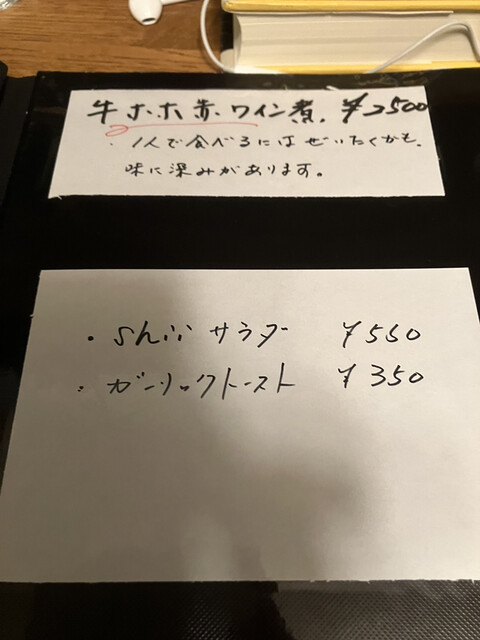 牛ホホ赤ワイン煮 ¥2500
・1人で食べるにはぜいたくかも。
味に深みがあります。
・shiiサラダ ¥550
・ガーリックトースト ¥350